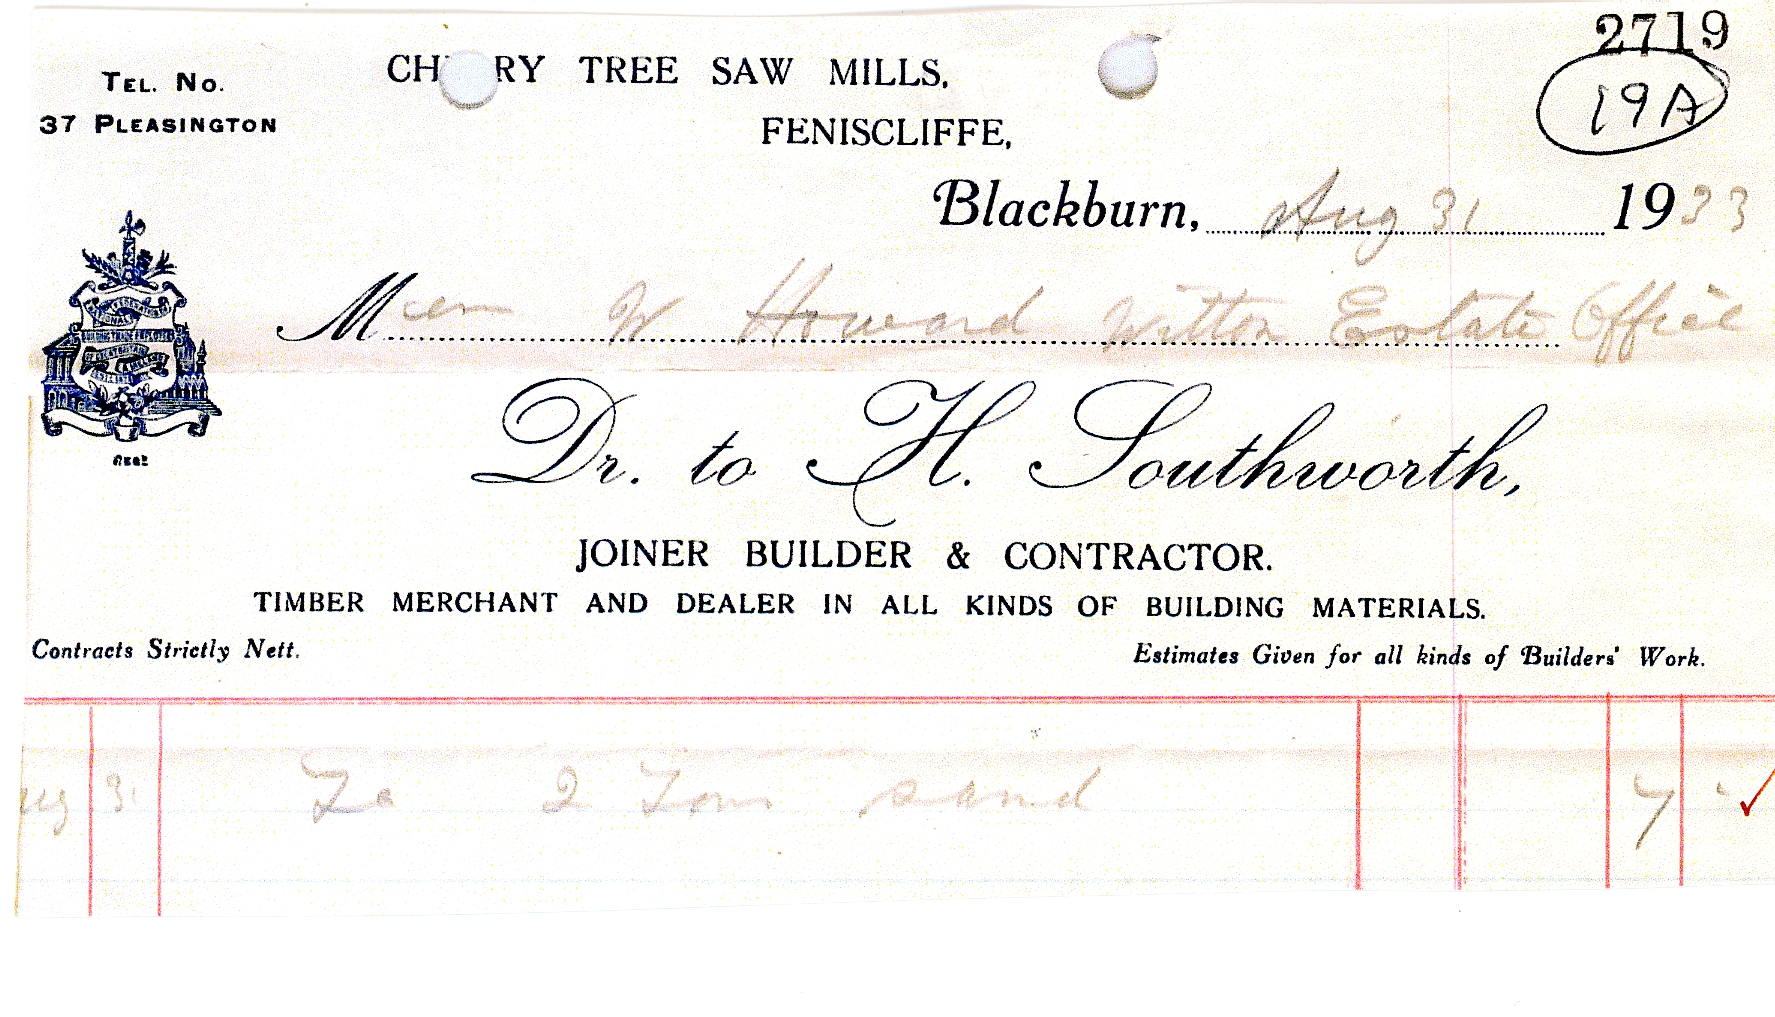 2719
19A
TEL. NO.
37 PLEASINGTON
CH RY TREE SAW MILLS,
FENISCLIFFE,
Blackburn, Aug 31 1933
M W Howard Witton Estate Office
Dr. to H. Southworth,
JOINER BUILDER & CONTRACTOR.
TIMBER MERCHANT AND DEALER IN ALL KINDS OF BUILDING MATERIALS.
Contracts Strictly Nett.
Estimates Given for all kinds of Builders' Work.
ug 31 To 2 Tons sand 7 -